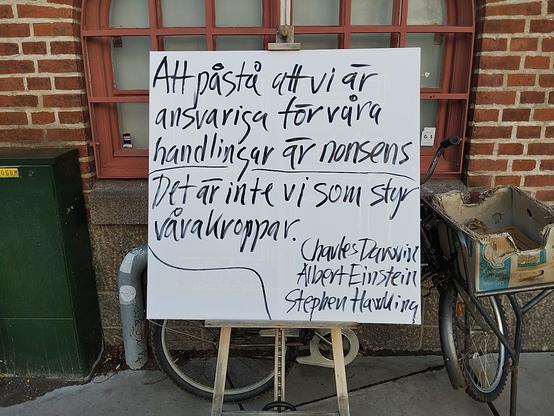 Att påstå att vi är
ansvariga för våra
handlingar är nonsens
Det är inte vi som styr
våra kroppar.
Charles Darwin
Albert Einstein
Stephen Hawking